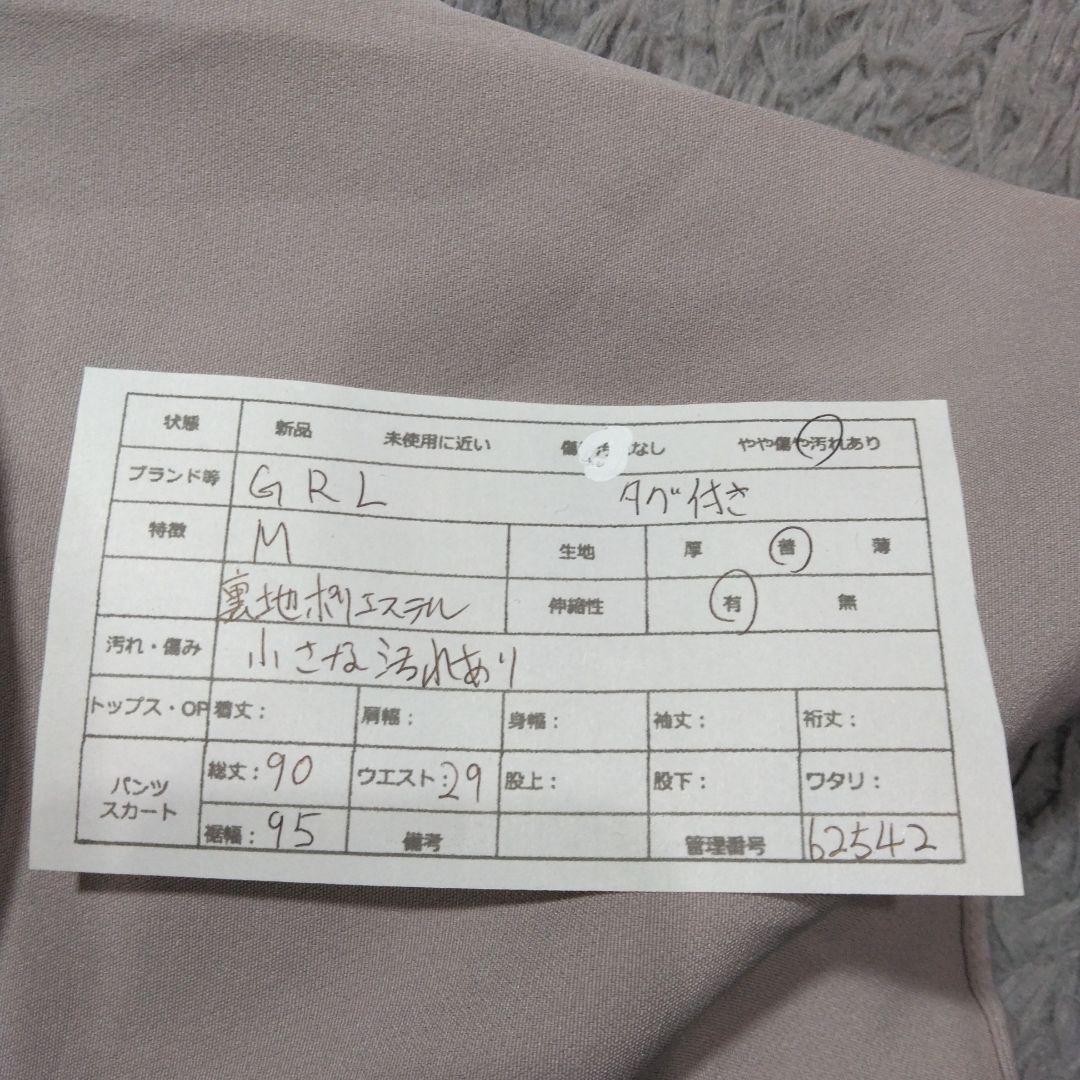 状態 新品 未使用に近い 傷や汚れなし やや傷や汚れあり
ブランド等 GRL タグ付き
特徴 M 生地 厚 普 薄
裏地ポリエステル 伸縮性 有 無
汚れ・傷み 小さな汚れあり
トップス・OP 着丈： 肩幅： 身幅： 袖丈： 裄丈：
パンツ スカート 総丈：90 ウエスト：29 股上： 股下： ワタリ：
裾幅：95 備考 管理番号 62542